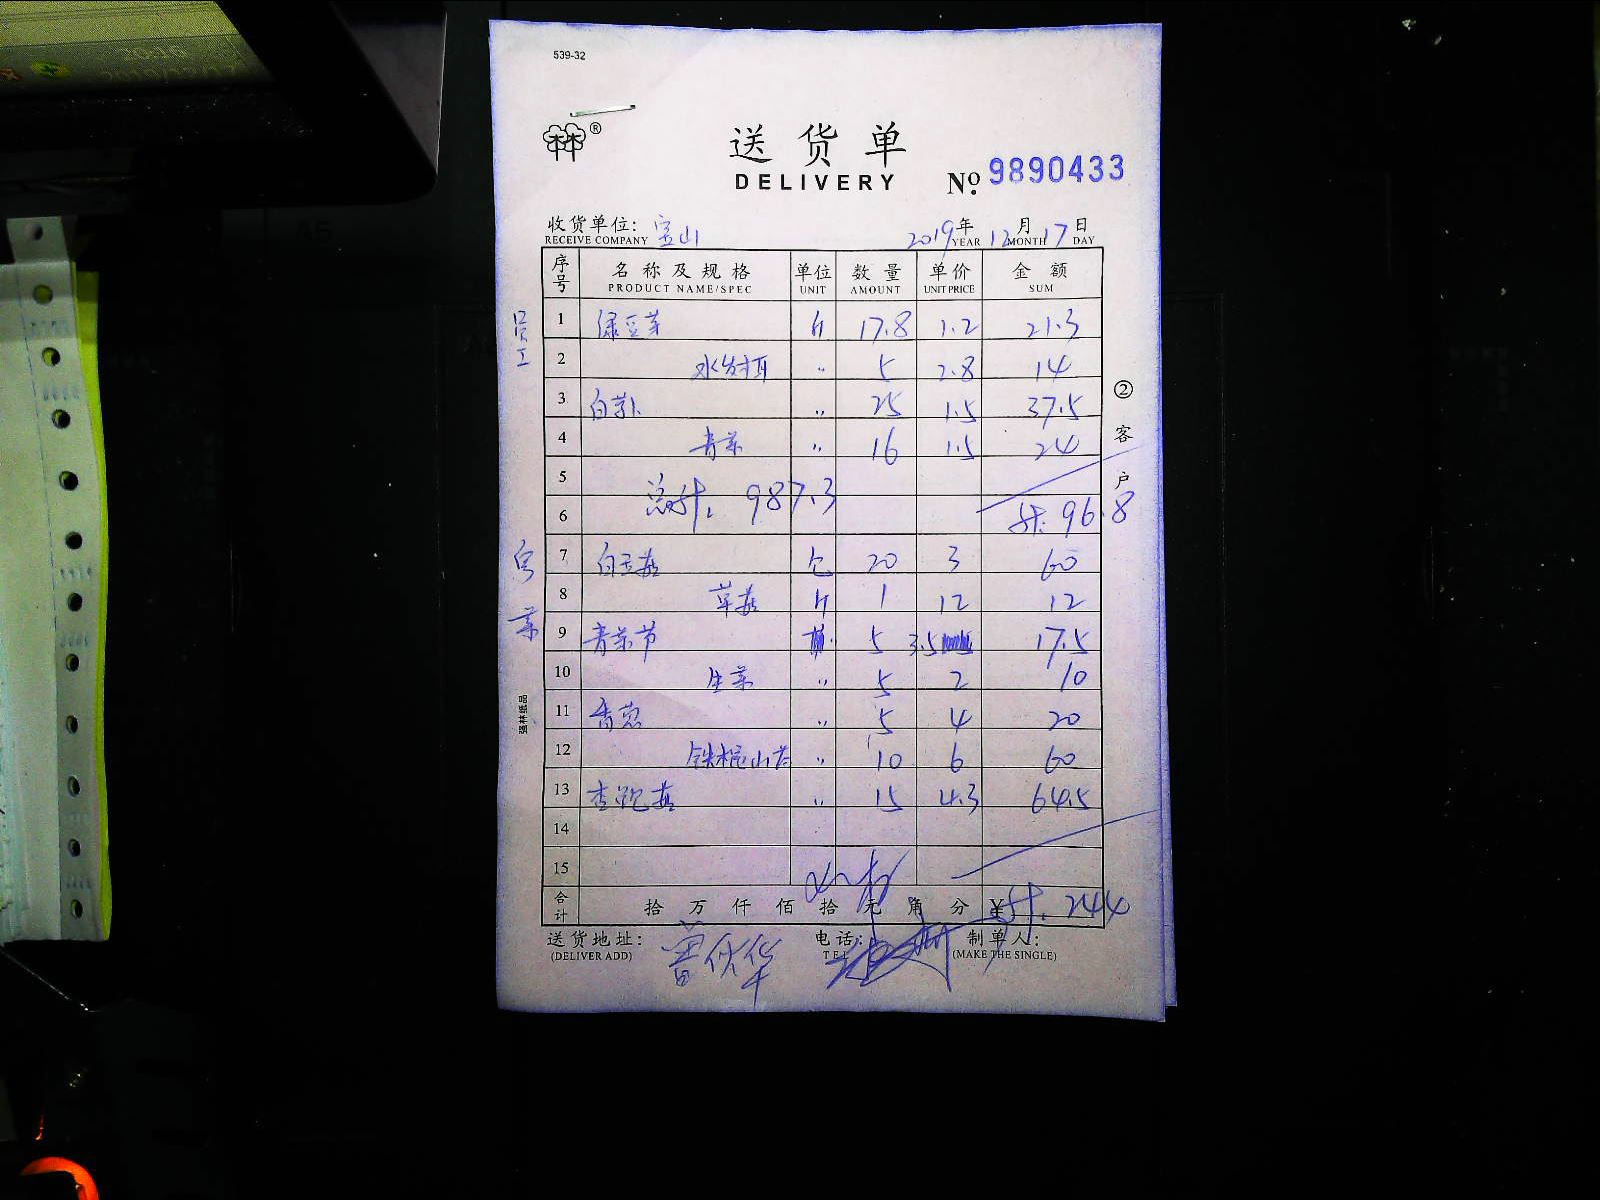 539-32
林®
送货单
DELIVERY
No. 9890433
收货单位: 宝山 2019年 12月 17日
RECEIVE COMPANY YEAR MONTH DAY
序号 名称及规格 单位 数量 单价 金额
PRODUCT NAME/SPEC UNIT AMOUNT UNIT PRICE SUM
员工
1 绿豆芽 斤 17.8 1.2 21.3
2 水发木耳 〃 5 2.8 14
3 白萝卜 〃 25 1.5 37.5
4 青菜 〃 16 1.5 24
5 总计: 987.3
6 计: 96.8
7 白玉菇 包 20 3 60
8 草菇 斤 1 12 12
9 青菜节 5 3.5 17.5
10 生菜 〃 5 2 10
11 香葱 〃 5 4 20
12 铁棍山药 〃 10 6 60
13 杏鲍菇 〃 15 4.3 64.5
14
15
合计 拾 万 仟 佰 拾 元 角 分 ¥ 计: 244
送货地址: 电话: 制单人:
(DELIVER ADD) TEL (MAKE THE SINGLE)
②客户
强林纸品